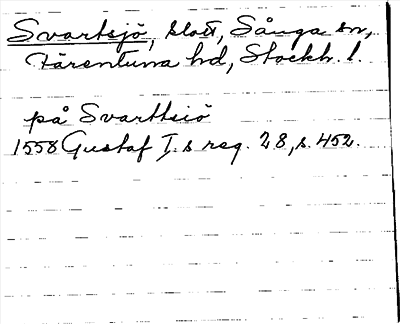 Svartsjö, slott, Sånga sn,
Färentuna hd, Stockh. l.
på Svarttsiö
1558 Gustaf I.s reg. 28, s. 452.